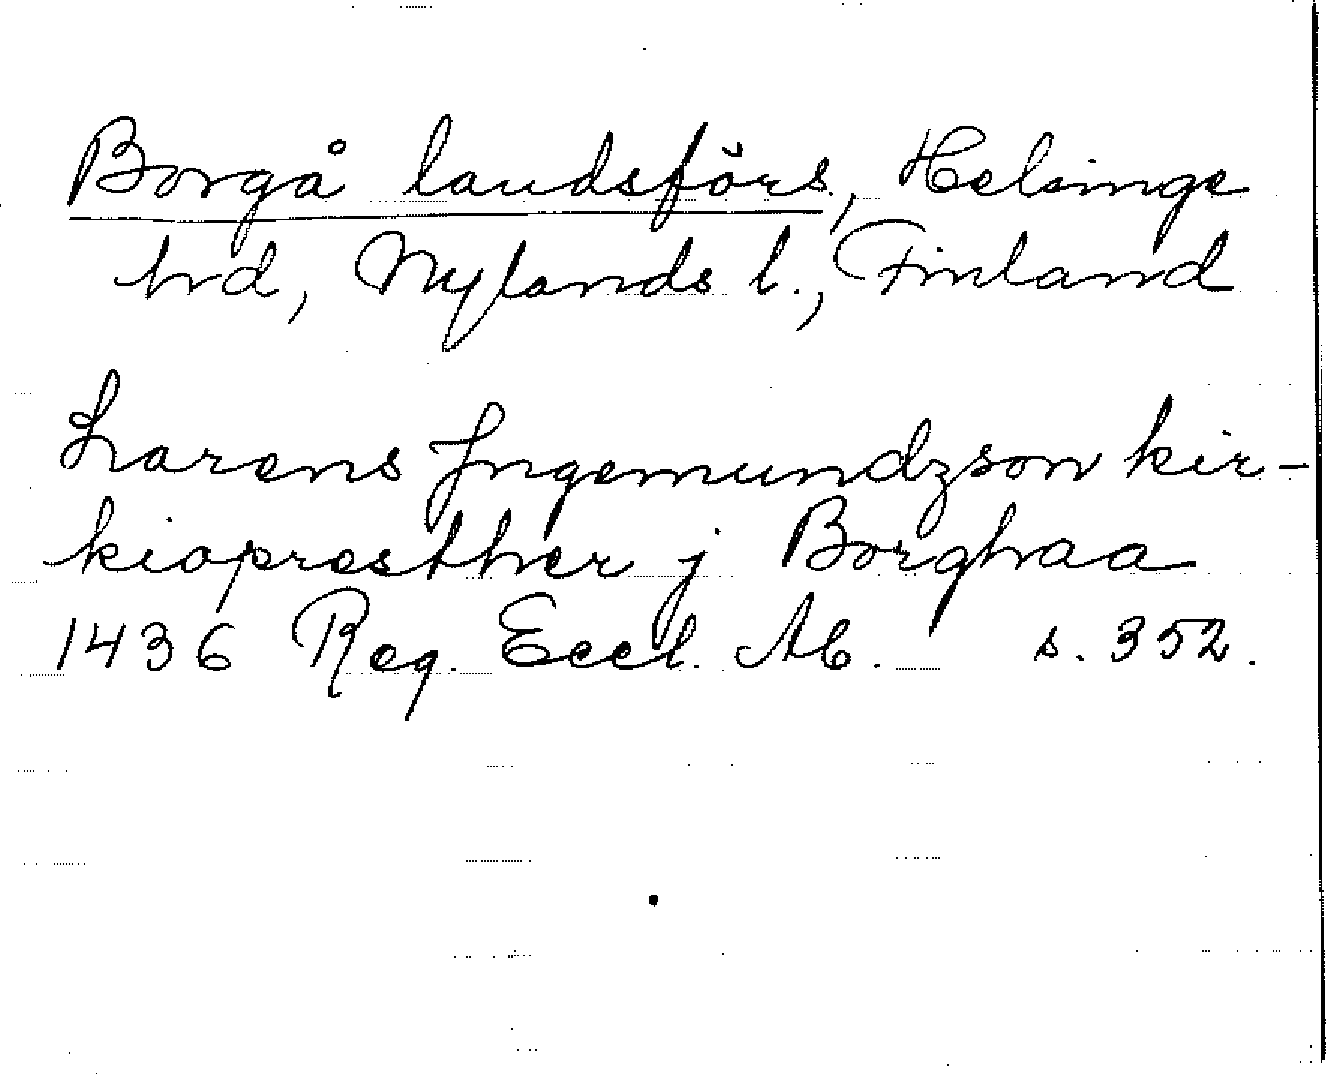 Borgå landsförs., Helsinge
hrd, Nylands l., Finland
Larens Jngemundzson kir-
kiopresther j Borghaa
1436 Reg. Eccl. Ab. s. 352.